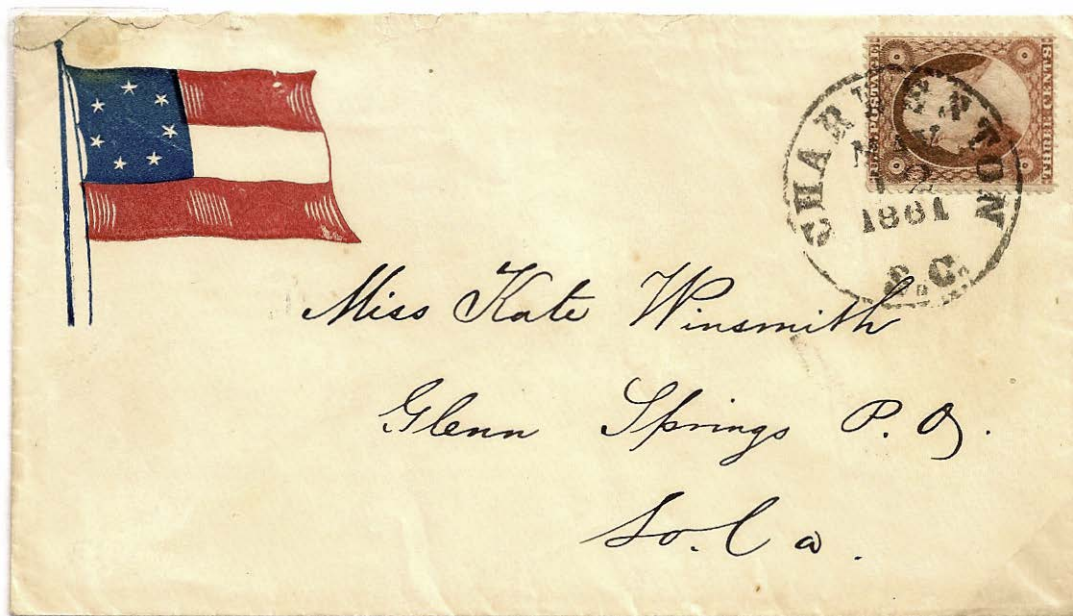 U.S. POSTAGE
THREE CENTS
CHARLESTON
1861
S.C.
Miss Kate Winsmith
Glenn Springs P.O.
So. Ca.